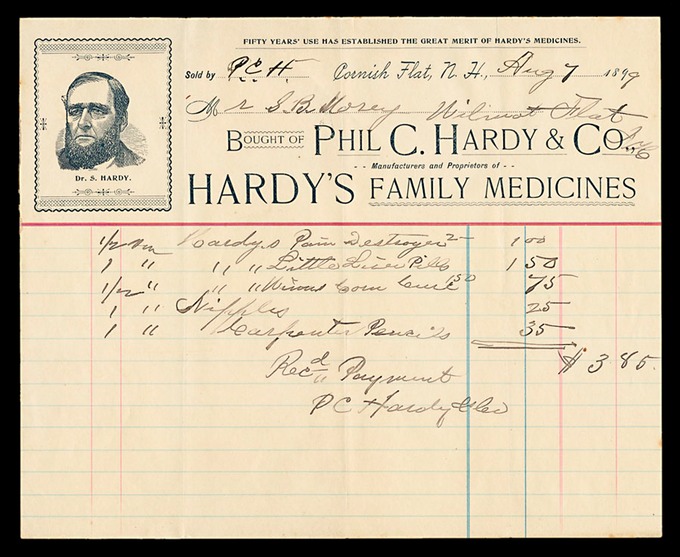 FIFTY YEARS' USE HAS ESTABLISHED THE GREAT MERIT OF HARDY'S MEDICINES.
Sold by P.C.H. Cornish Flat, N. H., Aug 7 1899
Mr S. B. Morey Wilmot Flat
BOUGHT OF PHIL C. HARDY & CO.,
Dr. S. HARDY.
- - Manufacturers and Proprietors of - -
HARDY'S FAMILY MEDICINES
1/2 Doz Hardys Pain Destroyer 2- 1 00
1 " " " Little Liver Pills 1 50
1/2 " " " Corn Cure 1 50 75
1 " Nipples 25
1 " Carpenter Pencils 35
$ 3.85.
Recd Payment
P C Hardy & Co